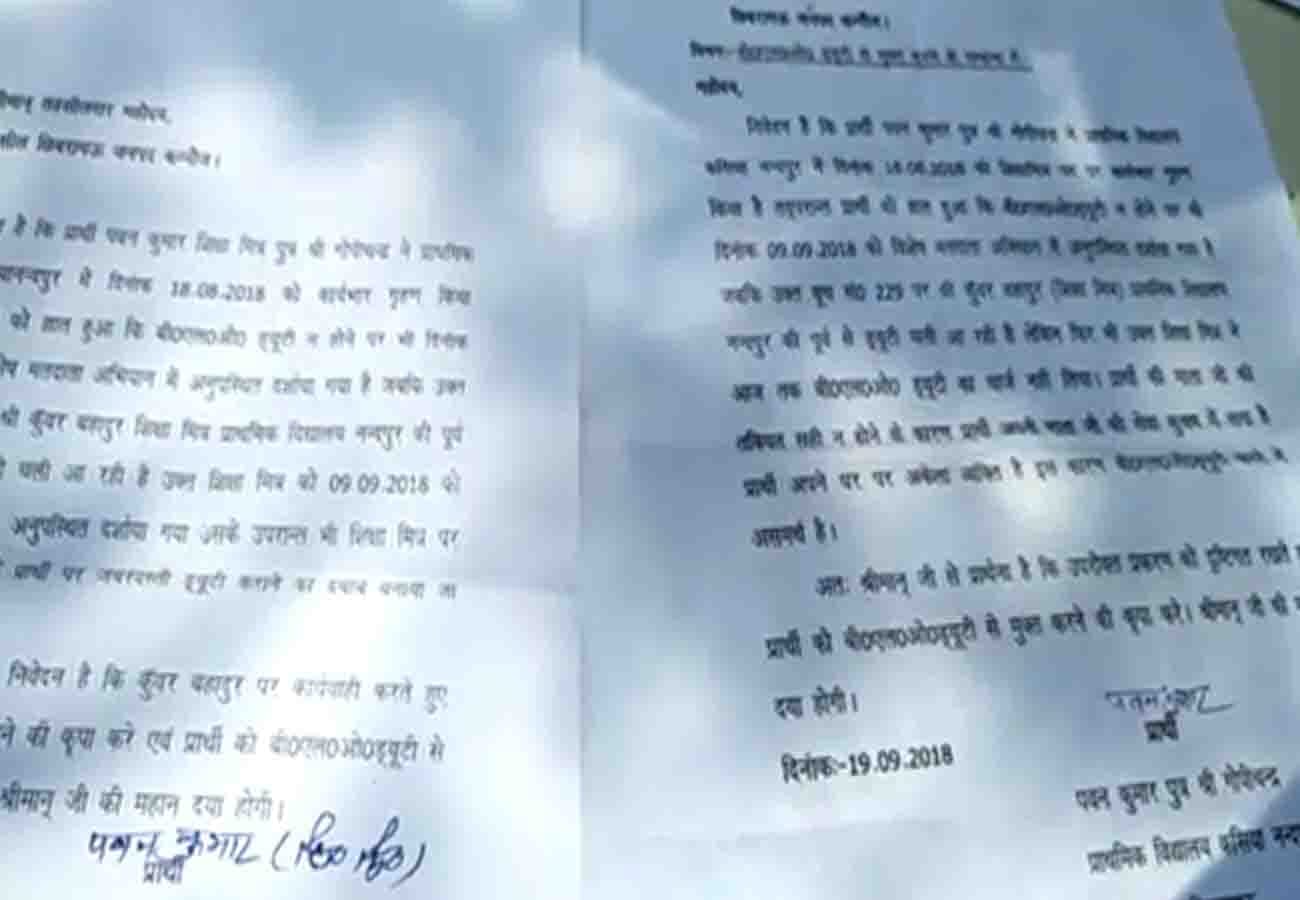 श्रीमान् तहसीलदार महोदय,
छिबरामऊ जनपद कन्नौज।
है कि प्रार्थी पवन कुमार शिक्षा मित्र पुत्र श्री गोपीचन्द्र ने प्राथमिक
नन्दपुर में दिनांक 18.08.2018 को कार्यभार गृहण किया
को ज्ञात हुआ कि बी0एल0ओ0 ड्यूटी न होने पर भी दिनांक
मतदाता अभियान में अनुपस्थित दर्शाया गया है जबकि उक्त
श्री कुँवर बहादुर शिक्षा मित्र प्राथमिक विद्यालय नन्दपुर की पूर्व
चली आ रही है उक्त शिक्षा मित्र को 09.09.2018 को
अनुपस्थित दर्शाया गया उसके उपरान्त भी शिक्षा मित्र पर
प्रार्थी पर जबरदस्ती ड्यूटी कराने का दबाब बनाया जा
निवेदन है कि कुँवर बहादुर पर कार्यवाही करते हुए
ने की कृपा करे एवं प्रार्थी को बी0एल0ओ0ड्यूटी से
श्रीमान् जी की महान दया होगी।
पवन कुमार (शि0 मि0)
प्रार्थी
छिबरामऊ जनपद कन्नौज।
विषयः- बी0एल0ओ0 ड्यूटी से मुक्त करने के सम्बन्ध में।
महोदय,
निवेदन है कि प्रार्थी पवन कुमार पुत्र श्री गोपीचन्द्र ने प्राथमिक विद्यालय
कसिया नन्दपुर में दिनांक 18.08.2018 को शिक्षामित्र पद पर कार्यभार गृहण
किया है तदुपरान्त प्रार्थी को ज्ञात हुआ कि बी0एल0ओ0ड्यूटी न होने पर भी
दिनांक 09.09.2018 को विशेष मतदाता अभियान में अनुपस्थित दर्शाया गया है
जबकि उक्त बूथ सं0 229 पर श्री कुँवर बहादुर (शिक्षा मित्र) प्राथमिक विद्यालय
नन्दपुर की पूर्व से ड्यूटी चली आ रही है लेकिन फिर भी उक्त शिक्षा मित्र ने
आज तक बी0एल0ओ0 ड्यूटी का चार्ज नहीं लिया। प्रार्थी की माता जी की
तबियत सही न होने के कारण प्रार्थी अपनी माता जी की सेवा में है
प्रार्थी अपने घर पर अकेला व्यक्ति है इस कारण बी0एल0ओ0ड्यूटी करने में
असमर्थ है।
अतः श्रीमान् जी से प्रार्थना है कि उपरोक्त प्रकरण को दृष्टिगत रखते
प्रार्थी को बी0एल0ओ0ड्यूटी से मुक्त करने की कृपा करे। श्रीमान् जी की
दया होगी।
पवन कुमार
प्रार्थी
दिनांकः-19.09.2018
पवन कुमार पुत्र श्री गोपीचन्द्र
प्राथमिक विद्यालय कसिया